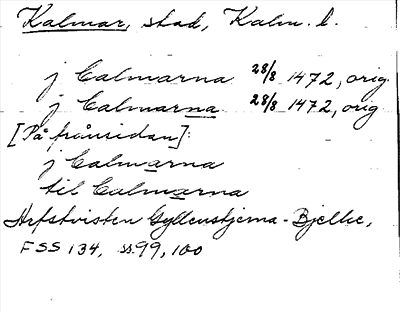 Kalmar, stad, Kalm. l.
j Calmarna 28/8 1472, orig.
j Calmarna 28/8 1472, orig
[På frånsidan]:
j Calmarna
til Calmarna
Arfstvisten Gyllenstjerna-Bjelke,
FSS 134, ss. 99, 100